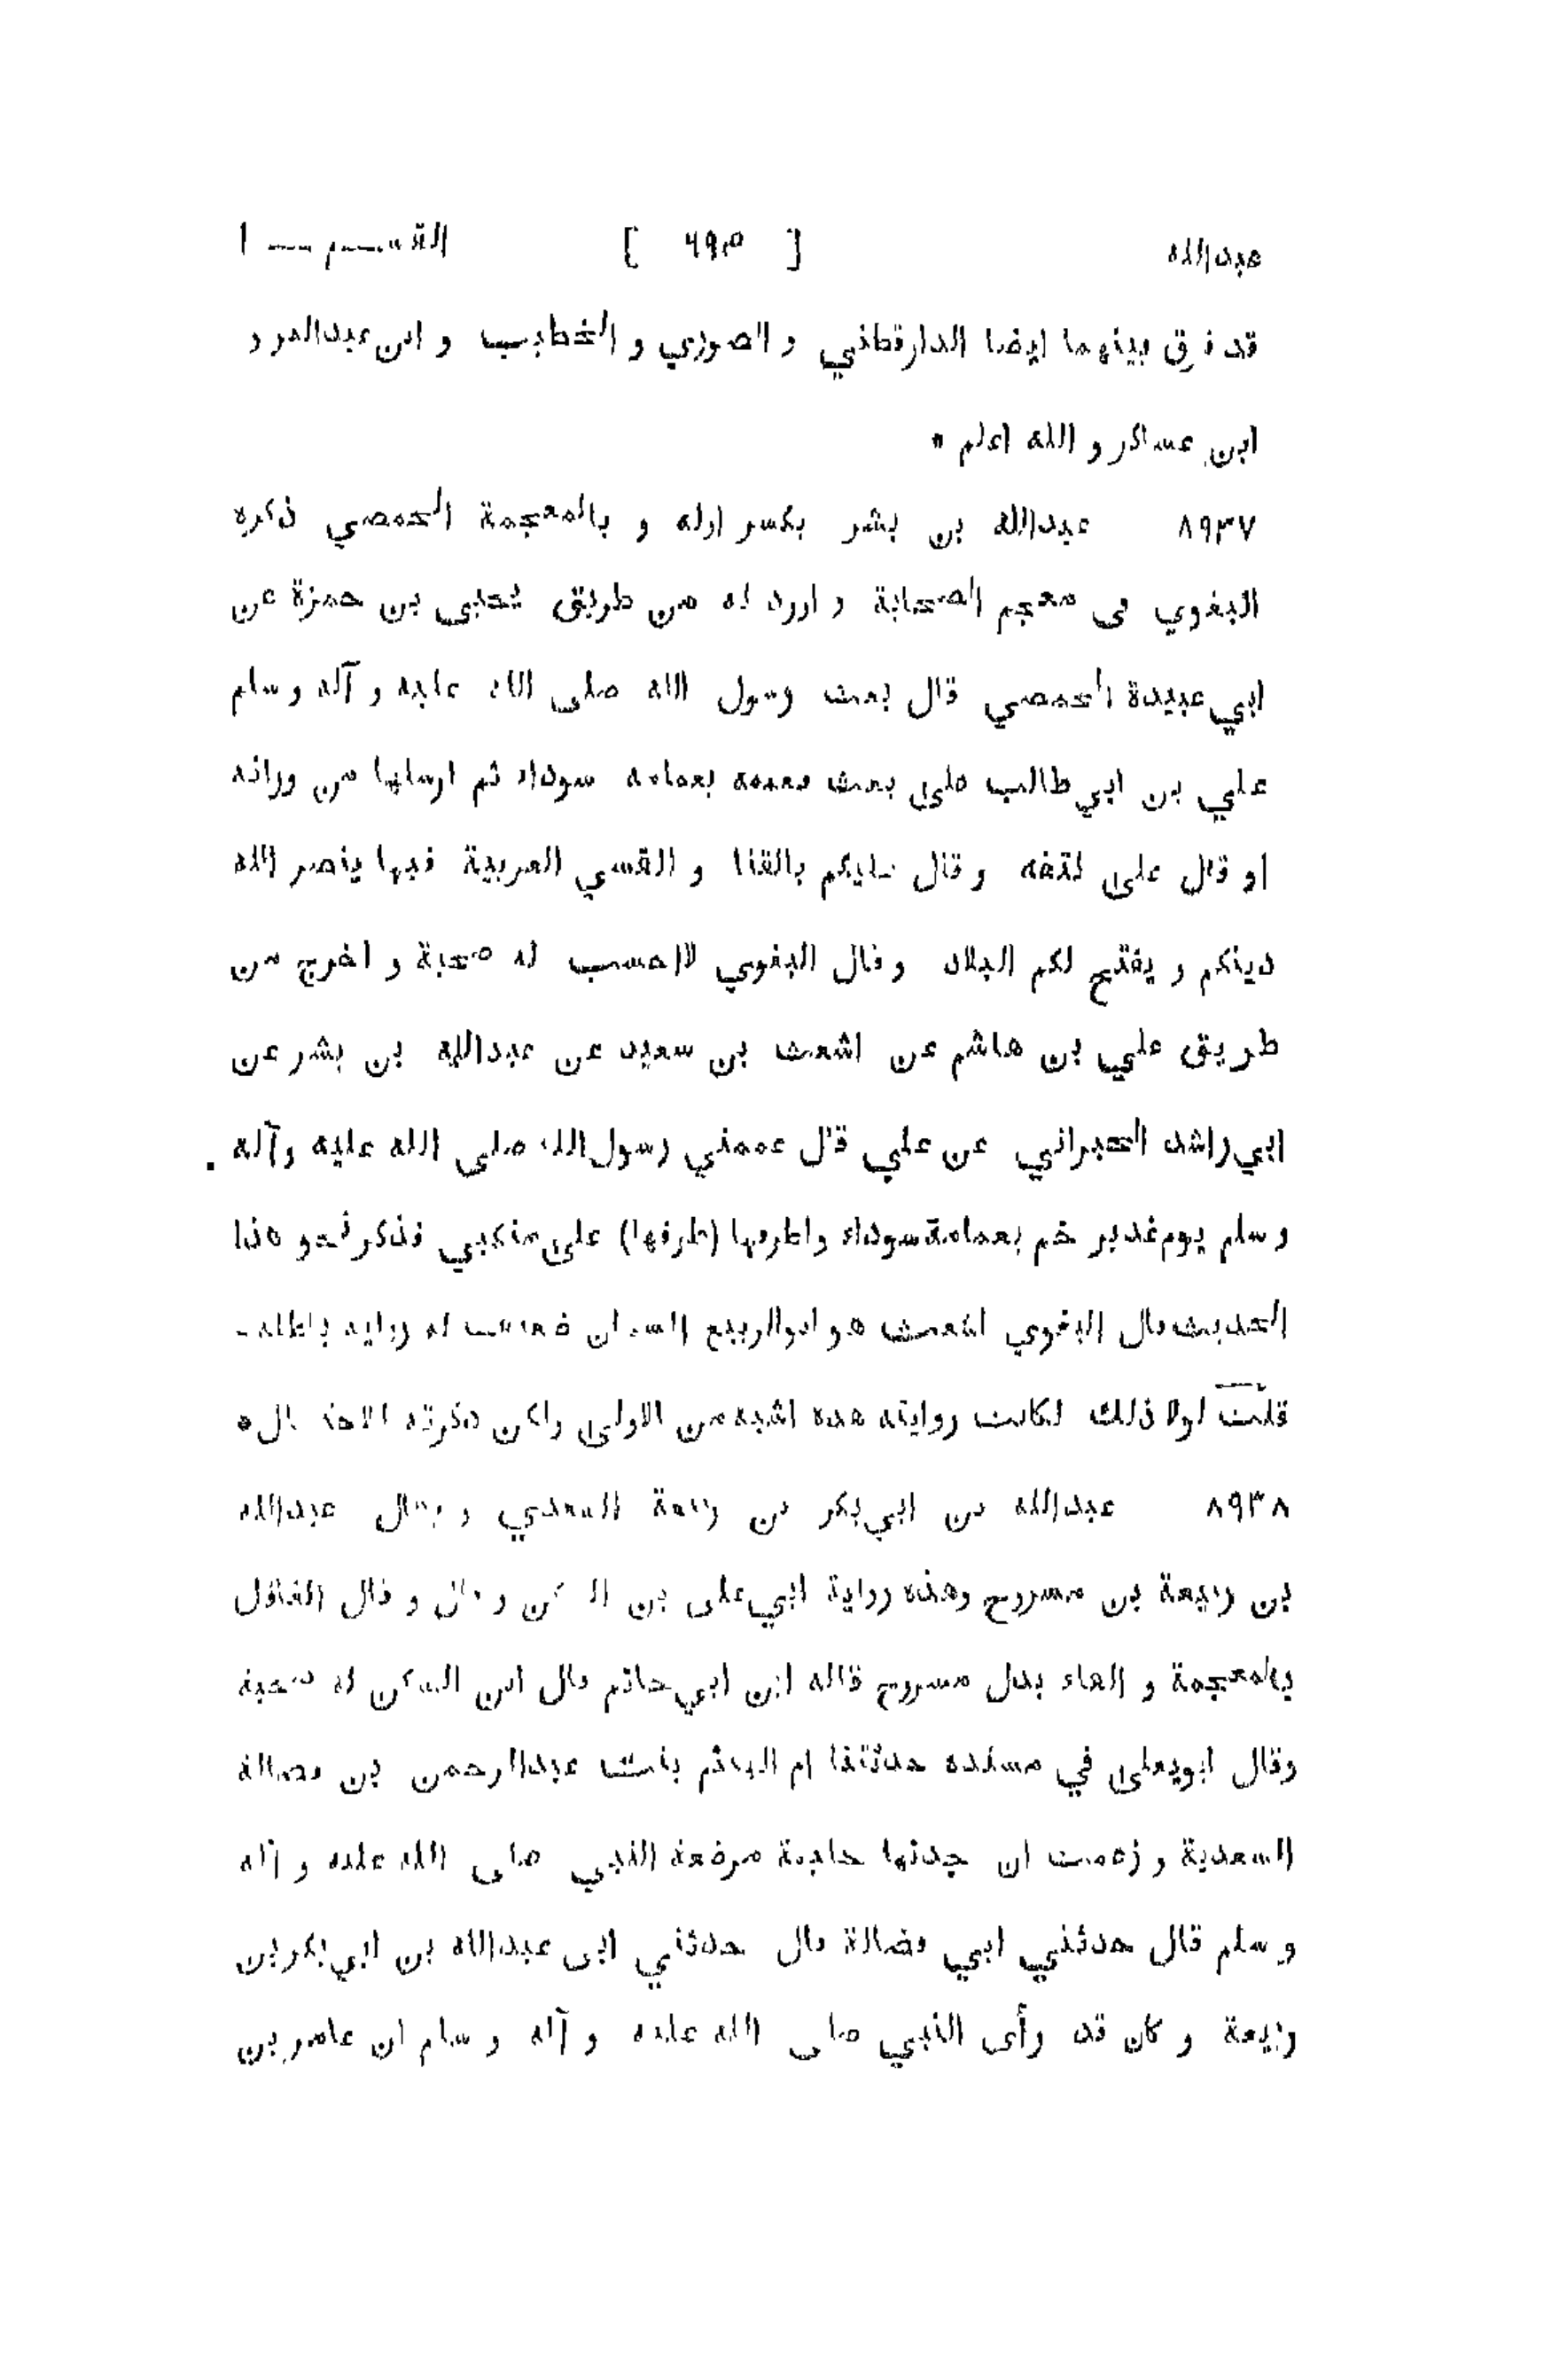 عبدالله [ ٦٩٥ ] القســم ــ ١
قد فرق بينهما ايضا الدارقطني و الصوري و الخطيب و ابن عبدالبر و
ابن عساكر و الله اعلم *
٨٩٣٧ عبدالله بن بشر بكسر اوله و بالمعجمة الحمصي ذكره
البغوي فى معجم الصحابة و اورد له من طريق يحيى بن حمزة عن
ابي عبيدة الحمصي قال بعث رسول الله صلى الله عليه و آله و سلم
علي بن ابي طالب على بعث فعممه بعمامه سوداء ثم ارسلها من ورائه
او قال على كتفه و قال عليكم بالقنا و القسي العربية فبها ينصر الله
دينكم و يفتح لكم البلاد و قال البغوي لااحسب له صحبة و اخرج من
طريق علي بن هاشم عن اشعث بن سعيد عن عبدالله بن بشر عن
ابي راشد الحبراني عن علي قال عممني رسول الله صلى الله عليه وآله
و سلم يوم غدير خم بعمامة سوداء و اطرفها (طرفها) على منكبي فذكر نحو هذا
الحديث قال البغوي اشعث هو ابوالربيع السمان ضعيف له روايه باطله
قلت لولا ذلك لكانت روايته هذه اشبه من الاولى ولكن ذكرته للاحتمال *
٨٩٣٨ عبدالله بن ابي بكر بن ربيعة السعدي و يقال عبدالله
بن ربيعة بن مسروح وهذه رواية ابي على بن السكن و قال الفافل
بالمعجمة و الفاء بدل مسروح قاله ابن ابي حاتم قال ابن السكن له صحبة
وقال ابويعلى في مسنده حدثتنا ام الهيثم بنت عبدالرحمن بن فضالة
السعدية و زعمت ان جدتها حليمة مرضعة النبي صلى الله عليه و آله
و سلم قال حدثني ابي فضالة قال حدثني ابى عبدالله بن ابي بكر بن
ربيعة و كان قد رأى النبي صلى الله عليه و آله و سلم ان عامر بن